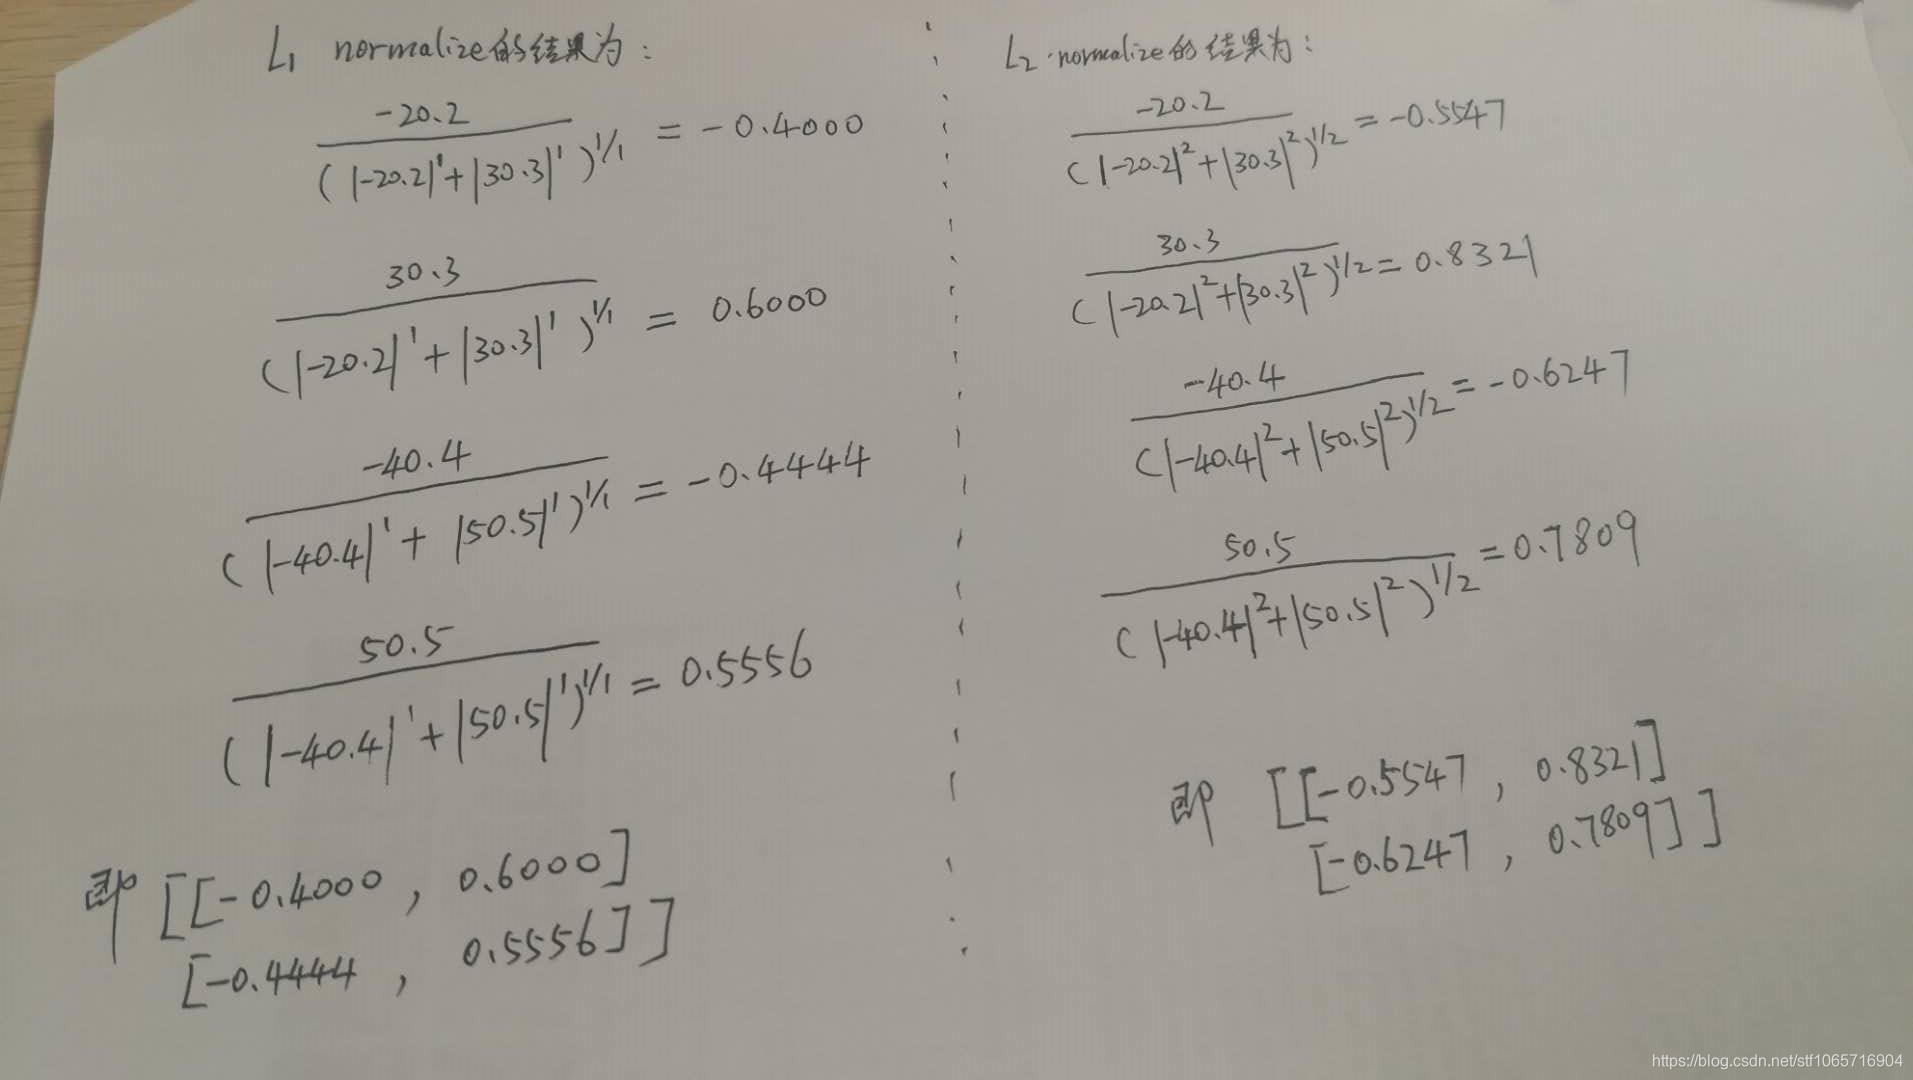 L₁ normalize的结果为：
-20.2
(|-20.2|¹+|30.3|¹)^1/1 = -0.4000
30.3
(|-20.2|¹+|30.3|¹)^1/1 = 0.6000
-40.4
(|-40.4|¹+|50.5|¹)^1/1 = -0.4444
50.5
(|-40.4|¹+|50.5|¹)^1/1 = 0.5556
即 [[-0.4000 , 0.6000]
[-0.4444 , 0.5556]]
L₂ normalize的结果为：
-20.2
(|-20.2|²+|30.3|²)^1/2 = -0.5547
30.3
(|-20.2|²+|30.3|²)^1/2 = 0.8321
-40.4
(|-40.4|²+|50.5|²)^1/2 = -0.6247
50.5
(|-40.4|²+|50.5|²)^1/2 = 0.7809
即 [[-0.5547 , 0.8321]
[-0.6247 , 0.7809]]
https://blog.csdn.net/stf1065716904